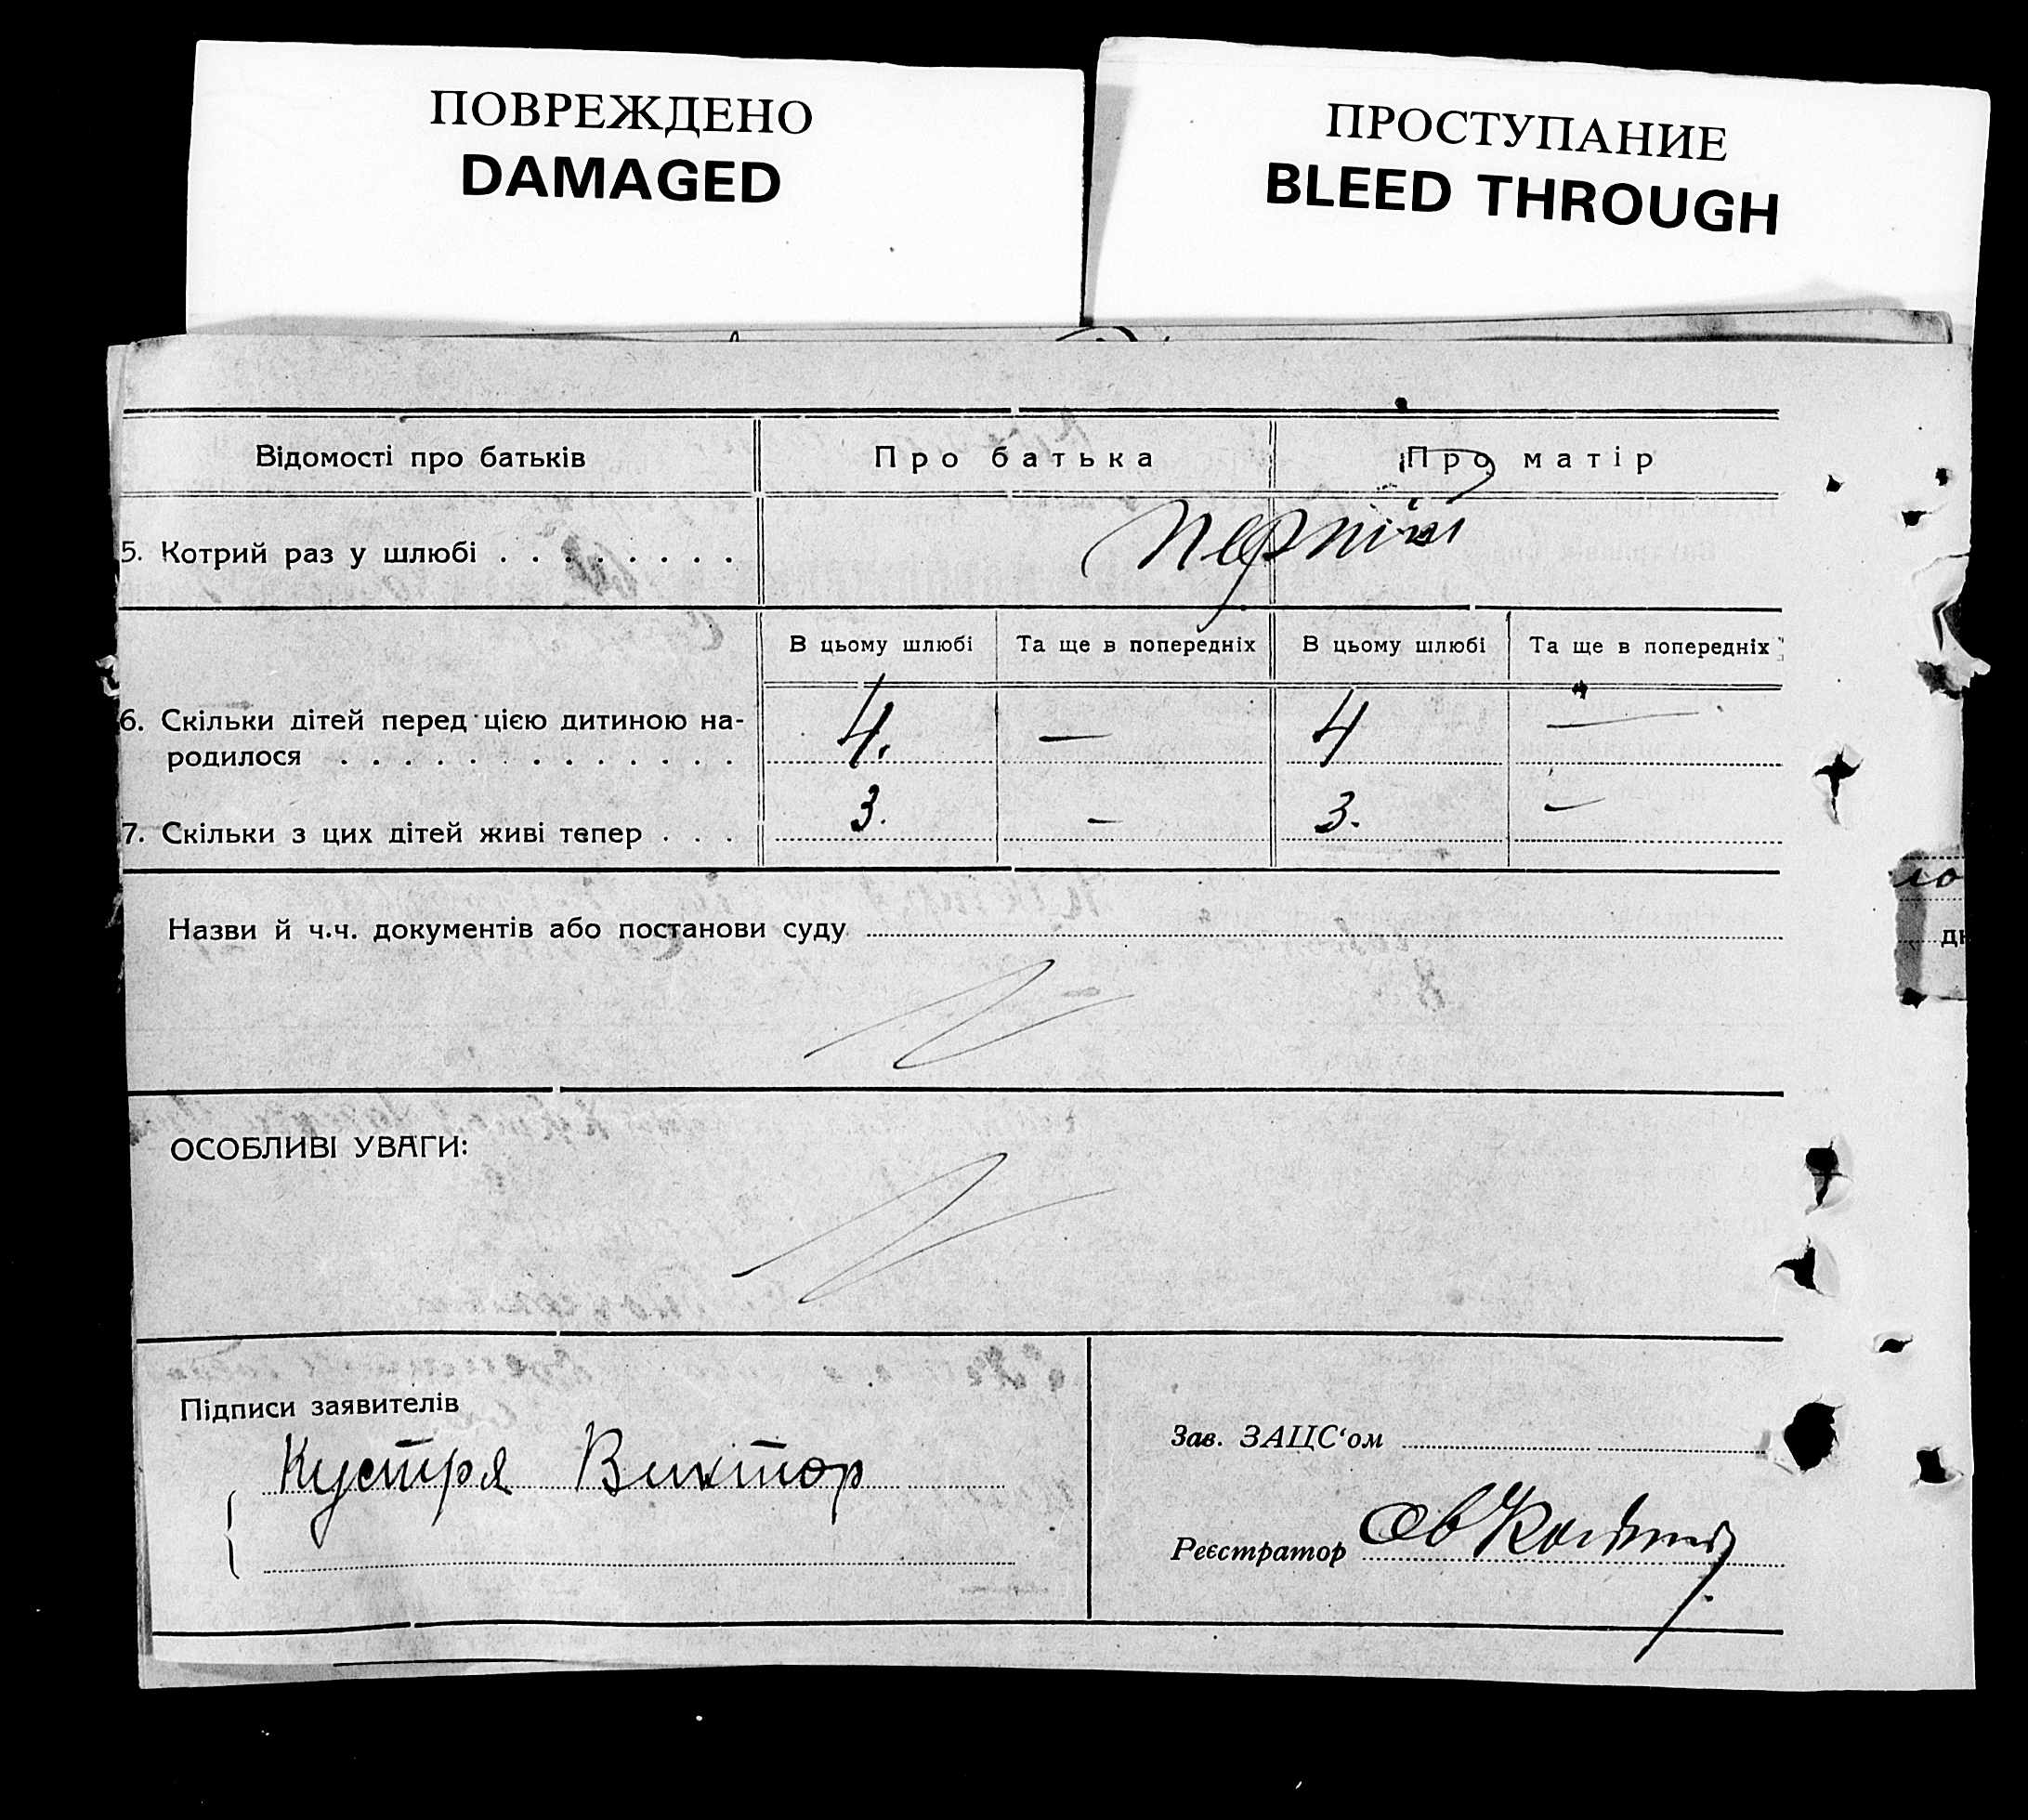 ПОВРЕЖДЕНО
DAMAGED
ПРОСТУПАНИЕ
BLEED THROUGH
Відомості про батьків Про батька Про матір
5. Котрий раз у шлюбі . . . . . . . .
В цьому шлюбі Та ще в попередніх В цьому шлюбі Та ще в попередніх
6. Скільки дітей перед цією дитиною на-
родилося . . . . . . . . . . . . . 4. — 4 —
7. Скільки з цих дітей живі тепер . . . 3. — 3. —
Назви й ч.ч. документів або постанови суду
ОСОБЛИВІ УВАГИ:
Підписи заявителів
Кустря Виктор
Зав. ЗАЦС‘ом
Реєстратор